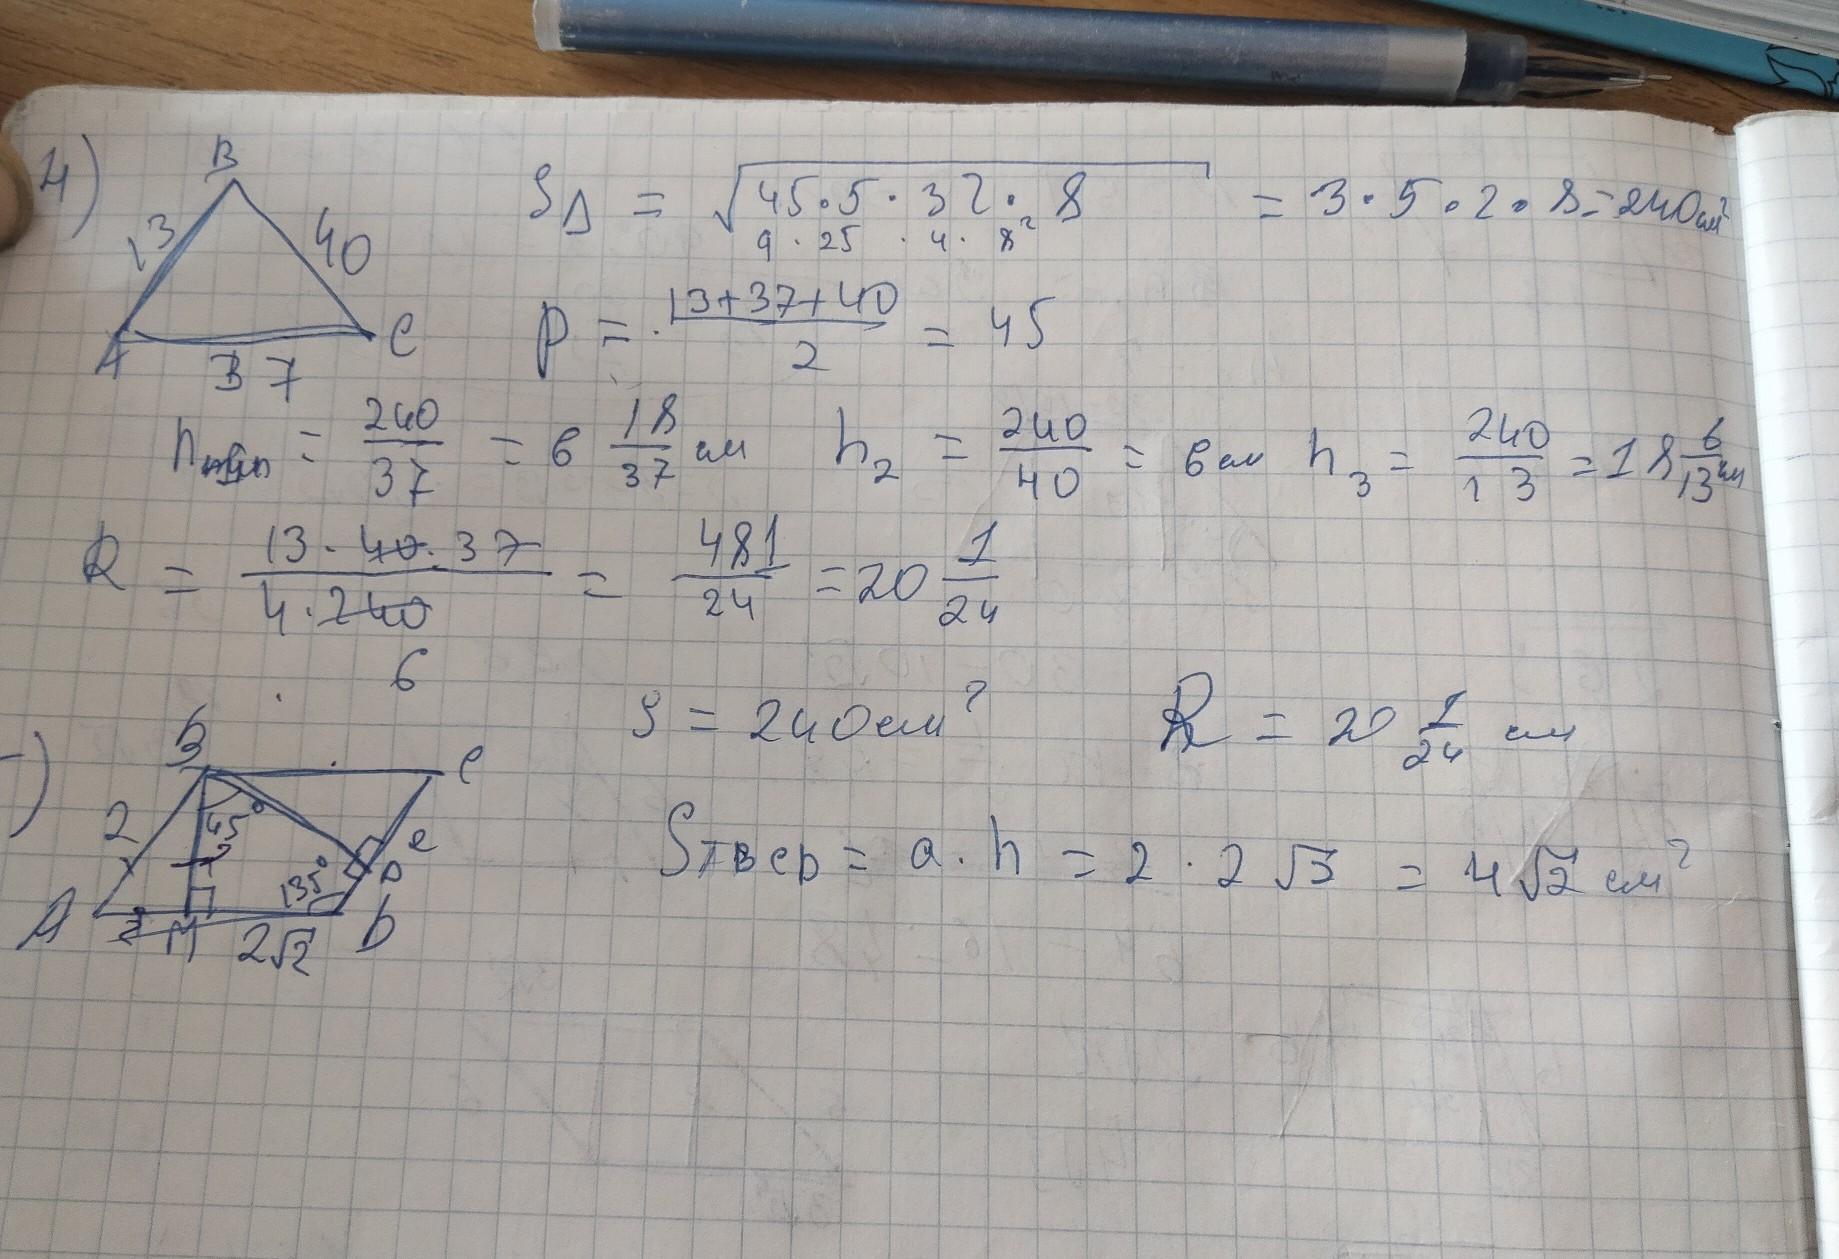 4)
B
13
40
A
37
C
S△ = √45·5·32·8 = 3·5·2·8=240см²
9 · 25 · 4 · 8²
p = 13+37+40 / 2 = 45
h = 240/37 = 6 18/37 см h₂ = 240/40 = 6 см h₃ = 240/13 = 18 6/13 см
R = 13·40·37 / 4·240 = 481/24 = 20 1/24
6
S = 240 см² R = 20 1/24 см
)
B
C
2
45°
2
e
A
M
135°
D
2√2
SABCD = a·h = 2·2√3 = 4√2 см²